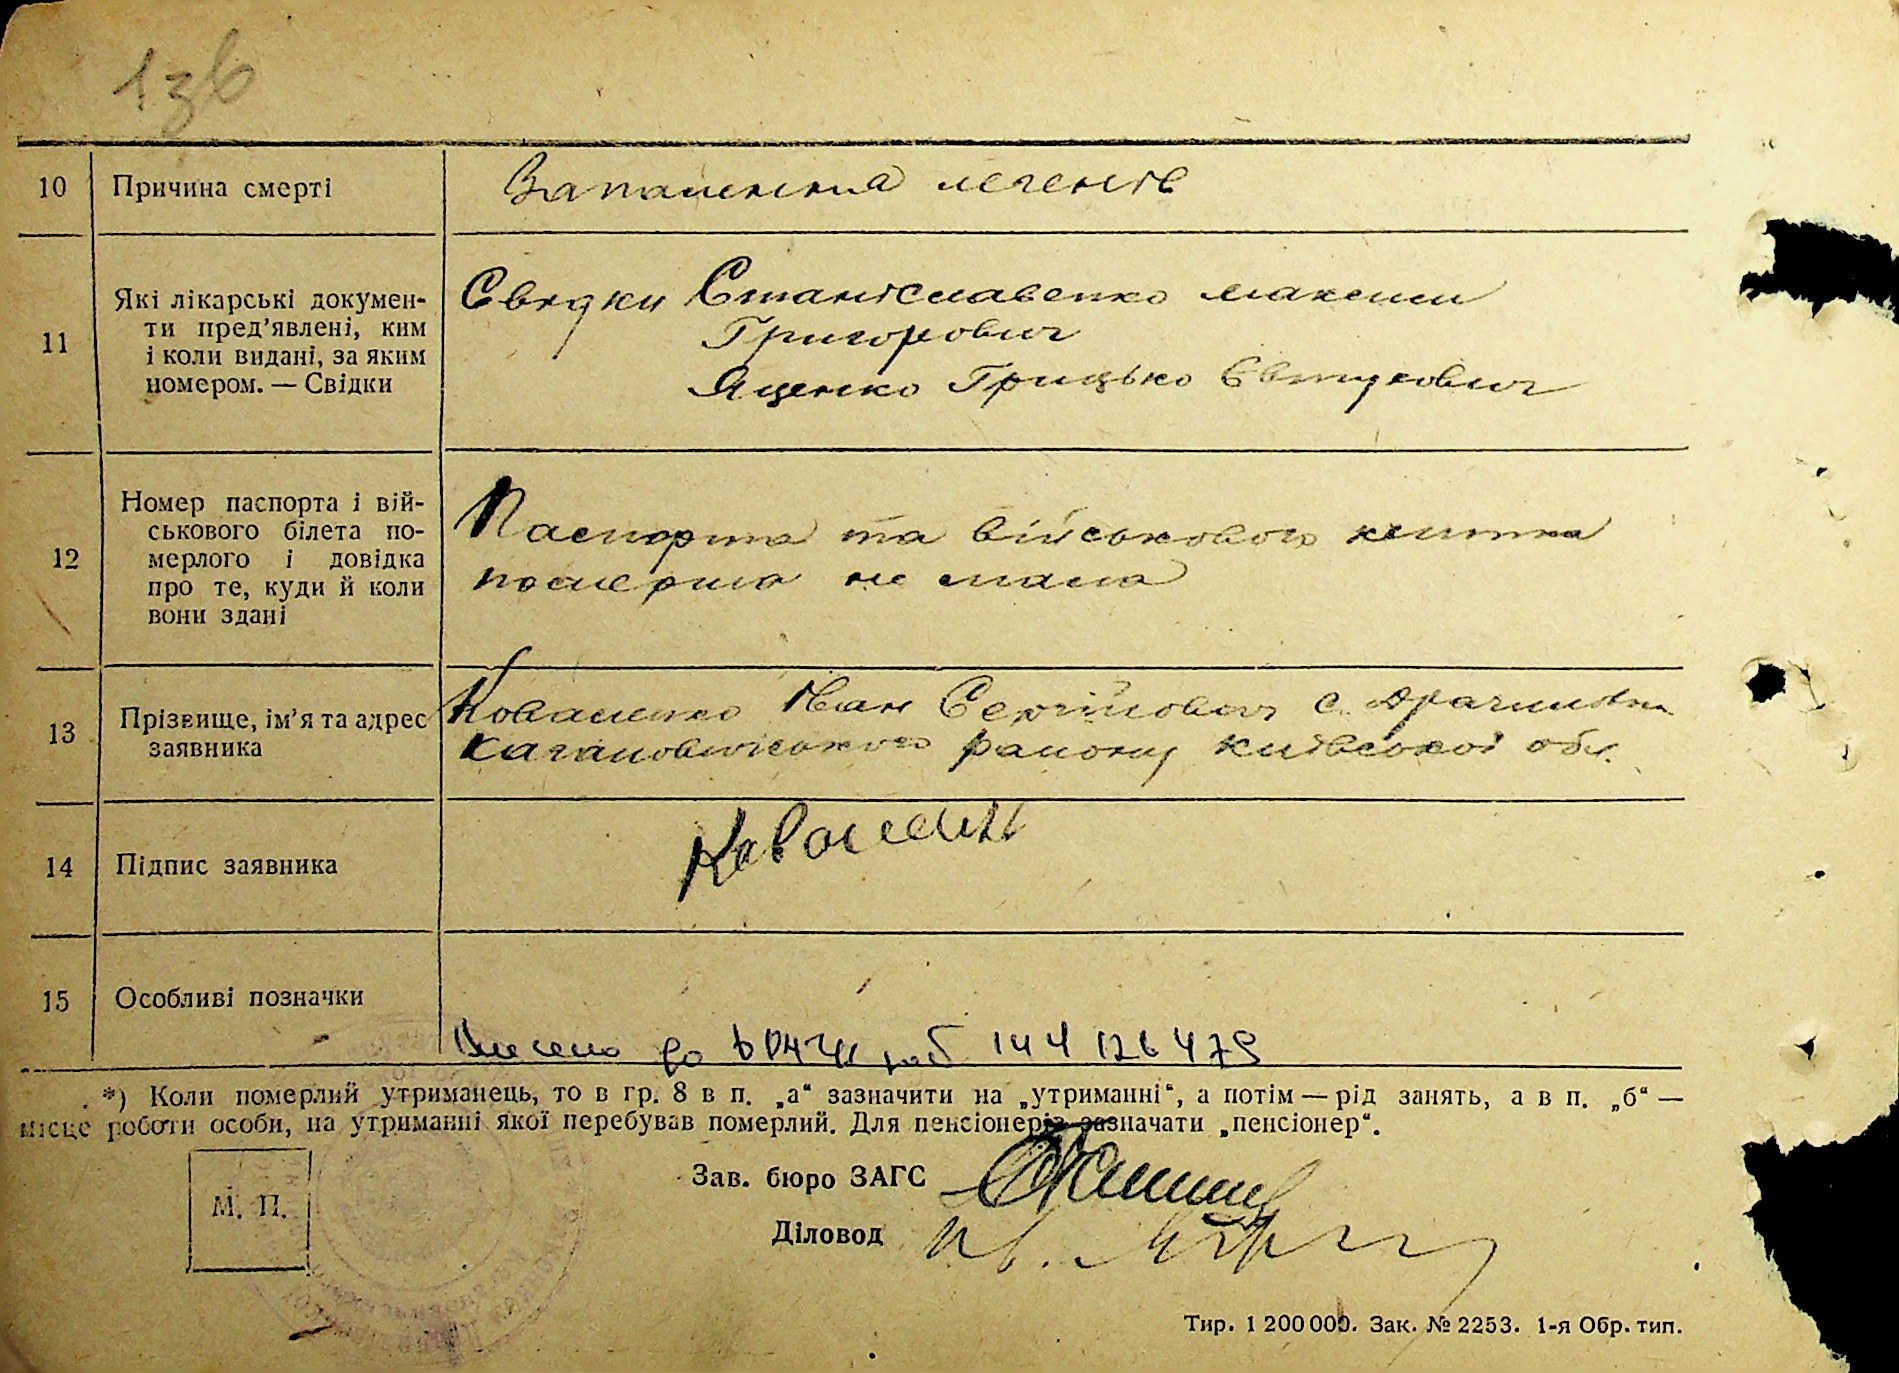 136
10 Причина смерті Запалення легенів
11 Які лікарські докумен-
ти пред’явлені, ким
і коли видані, за яким
номером. — Свідки
Свідки Станіславенко Максим
Григорович
Яценко Грицько Євтухович
12 Номер паспорта і вій-
ськового білета по-
мерлого і довідка
про те, куди й коли
вони здані
Паспорта та військового квитка
померша не мала
13 Прізвище, ім’я та адрес
заявника
Коваленко Іван Сергійович с.
Кагановичського району Київської обл.
14 Підпис заявника Коваленко
15 Особливі позначки
Внесено до 144 126 479
*) Коли померлий утриманець, то в гр. 8 в п. „а“ зазначити на „утриманні“, а потім — рід занять, а в п. „б“ —
місце роботи особи, на утриманні якої перебував померлий. Для пенсіонерів зазначати „пенсіонер“.
М. П.
Зав. бюро ЗАГС
Діловод
Тир. 1 200 000. Зак. № 2253. 1-я Обр. тип.